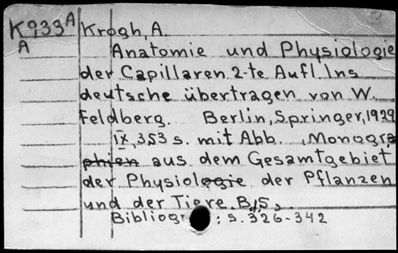 K933A Krogh, A.
A Anatomie und Physiologie
der Capillaren. 2-te Aufl. Ins
deutsche übertragen von W.
Feldberg. Berlin, Springer, 1929
IX, 353 s. mit Abb. „Monogra
phien aus dem Gesamtgebiet
der Physiologie der Pflanzen
und der Tiere. B. 5„
Bibliogr.: s. 326-342